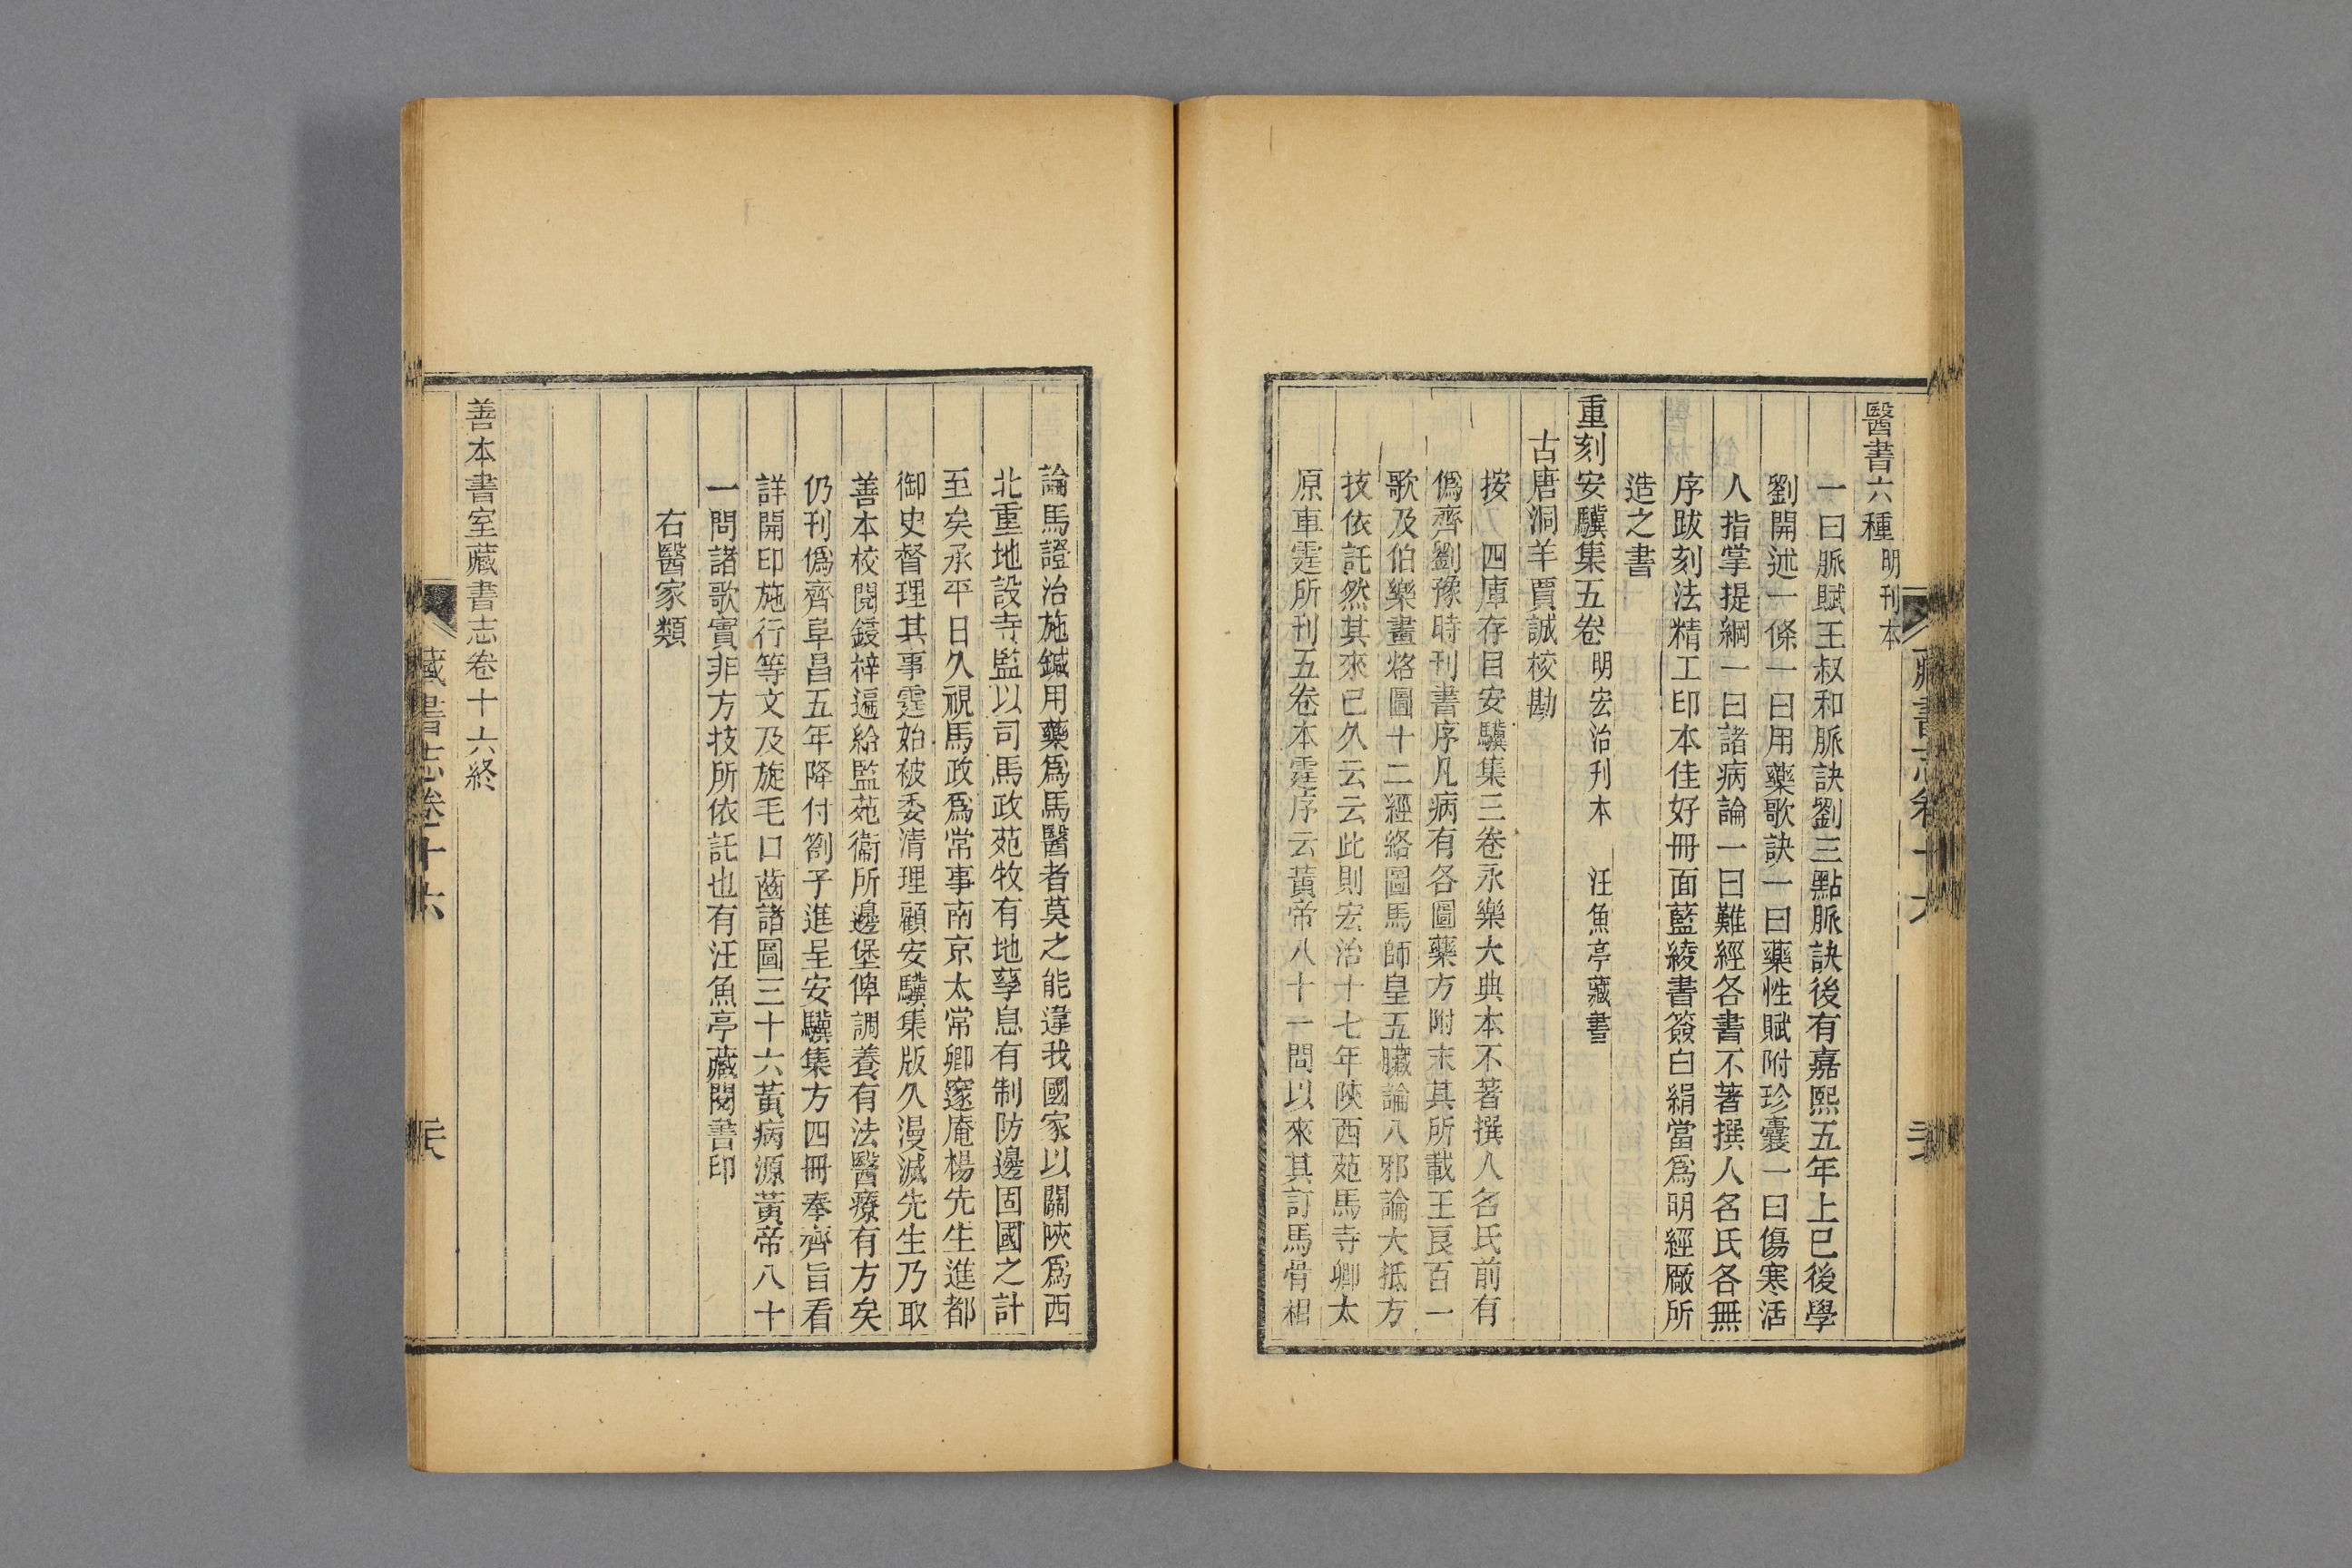 醫書六種 明刊本
一曰脈賦王叔和脈訣劉三點脈訣後有嘉熙五年上巳後學
劉開述一條一曰用藥歌訣一曰藥性賦附珍囊一曰傷寒活
人指掌提綱一曰諸病論一曰難經各書不著撰人名氏各無
序跋刻法精工印本佳好冊面藍綾書簽白絹當爲明經厰所
造之書
重刻安驥集五卷 明宏治刊本 汪魚亭藏書
古唐洞羊賈誠校勘
按 四庫存目安驥集三卷永樂大典本不著撰人名氏前有
僞齊劉豫時刊書序凡病有各圖藥方附末其所載王良百一
歌及伯樂畫烙圖十二經絡圖馬師皇五臟論八邪論大抵方
技依託然其來已久云云此則宏治十七年陝西苑馬寺卿太
原車霆所刊五卷本霆序云黃帝八十一問以來其訂馬骨相
論馬證治施鍼用藥爲馬醫者莫之能違我國家以關陝爲西
北重地設寺監以司馬政苑牧有地孳息有制防邊固國之計
至矣承平日久視馬政爲常事南京太常卿邃庵楊先生進都
御史督理其事霆始被委清理顧安驥集版久漫滅先生乃取
善本校閱鋟梓遍給監苑衞所邊堡俾調養有法醫療有方矣
仍刊僞齊阜昌五年降付劄子進呈安驥集方四冊奉齊旨看
詳開印施行等文及旋毛口齒諸圖三十六黃病源黃帝八十
一問諸歌實非方技所依託也有汪魚亭藏閱善印
右醫家類
善本書室藏書志卷十六終
藏書志卷十六